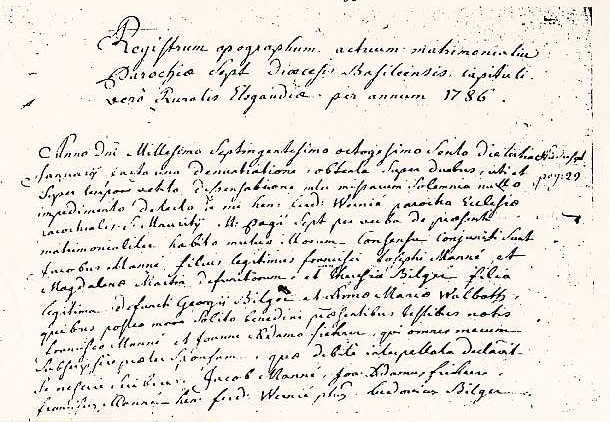 Registrum apographum actuum matrimonialiu
Parochiæ Sept Diœcesis Basileensis capituli
verò Ruralis Elsgaudiæ per annum 1786.
Anno Dni Millesimo Septingentesimo octogesimo Sexto die
Januarij facta una denuntiatione, obtenta super duabus, uti et
super tempore vetito dispensatione inter missarum Solemnia nullo
impedimento detecto à me hen: ferd: Wernié parocho Ecclesiæ
parochialis S. Mauritij M. Pagi Sept per verba de præsenti
matrimonialiter habito mutuo illorum Consensu conjuncti sunt
Jacobus Manné filius legitimus francisci Josephi Manné et
Magdalenæ defunctorum, et Theresia Bilger filia
legitima defuncti Georgij Bilger et Annæ Mariæ Walboth,
quibus postea more solito benedixi præsentibus testibus notis
francisco Manné et Joanne Adamo qui omnes mecum
subscripsere præter Sponsam, quæ debitè interpellata declaravit
se nescire scribere. Jacob Manné, Joa: Adamus
franciscus Manné hen: ferd: Wernié Ludovicus Bilger
pag: 29